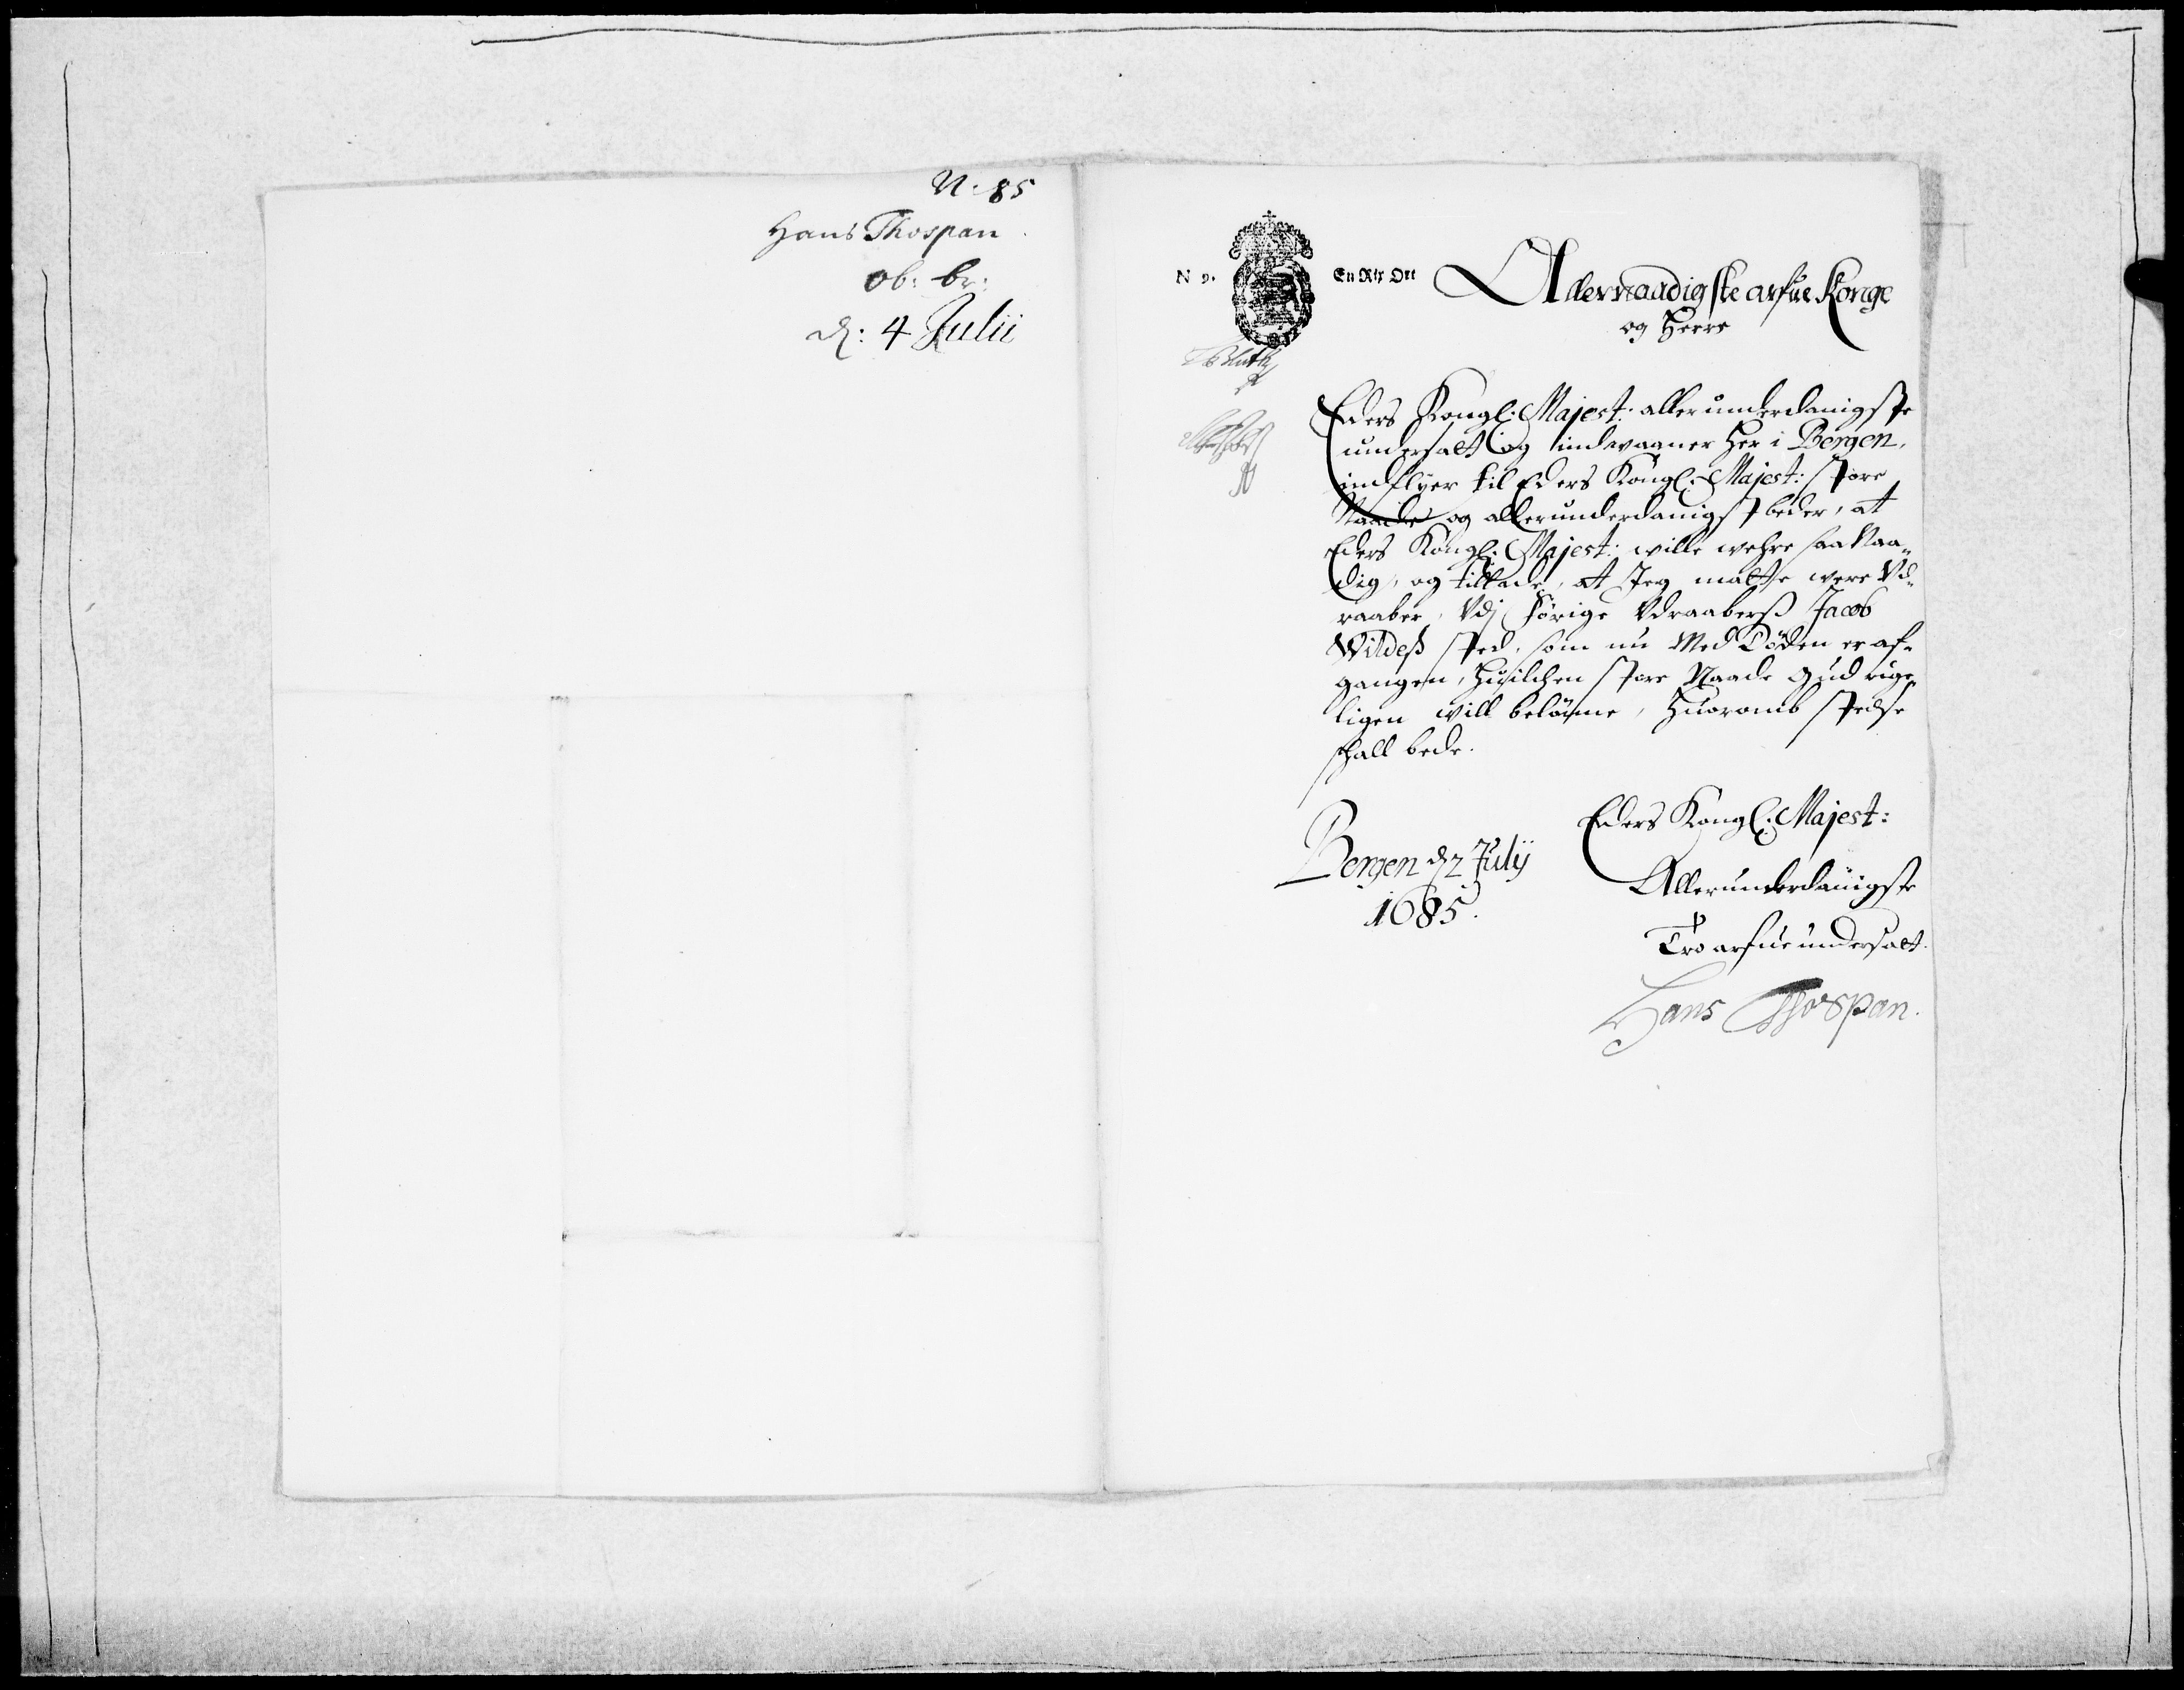 N. 85
Hans Thospan
ob: br:
d: 4 Julii
N 9.
En Rix Ort
Allernaadigste arfue Konge
og Herre
Eders Kongl: Majest: allerunderdanigste
undersatt og indwaaner her i Bergen,
indflyer til Eders Kongl: Majest: store
Naade og allerunderdanigst beder, at
Eders Kongl: Majest: wille wehre saa Naa-
dig, og tillade, at Jeg maatte were Vd-
raaber, Vdj forige Vdraaberß Jacob
Wildeß sted, som nu Med Döden er af-
gangen, Huilchen store Naade Gud rige-
ligen will belönne, Huoromb stedse
schall bede.
Eders Kongl: Majest:
Bergen d 2 Julij
1685.
Allerunderdanigste
Tro arfue undersatt.
Hans Thospan.